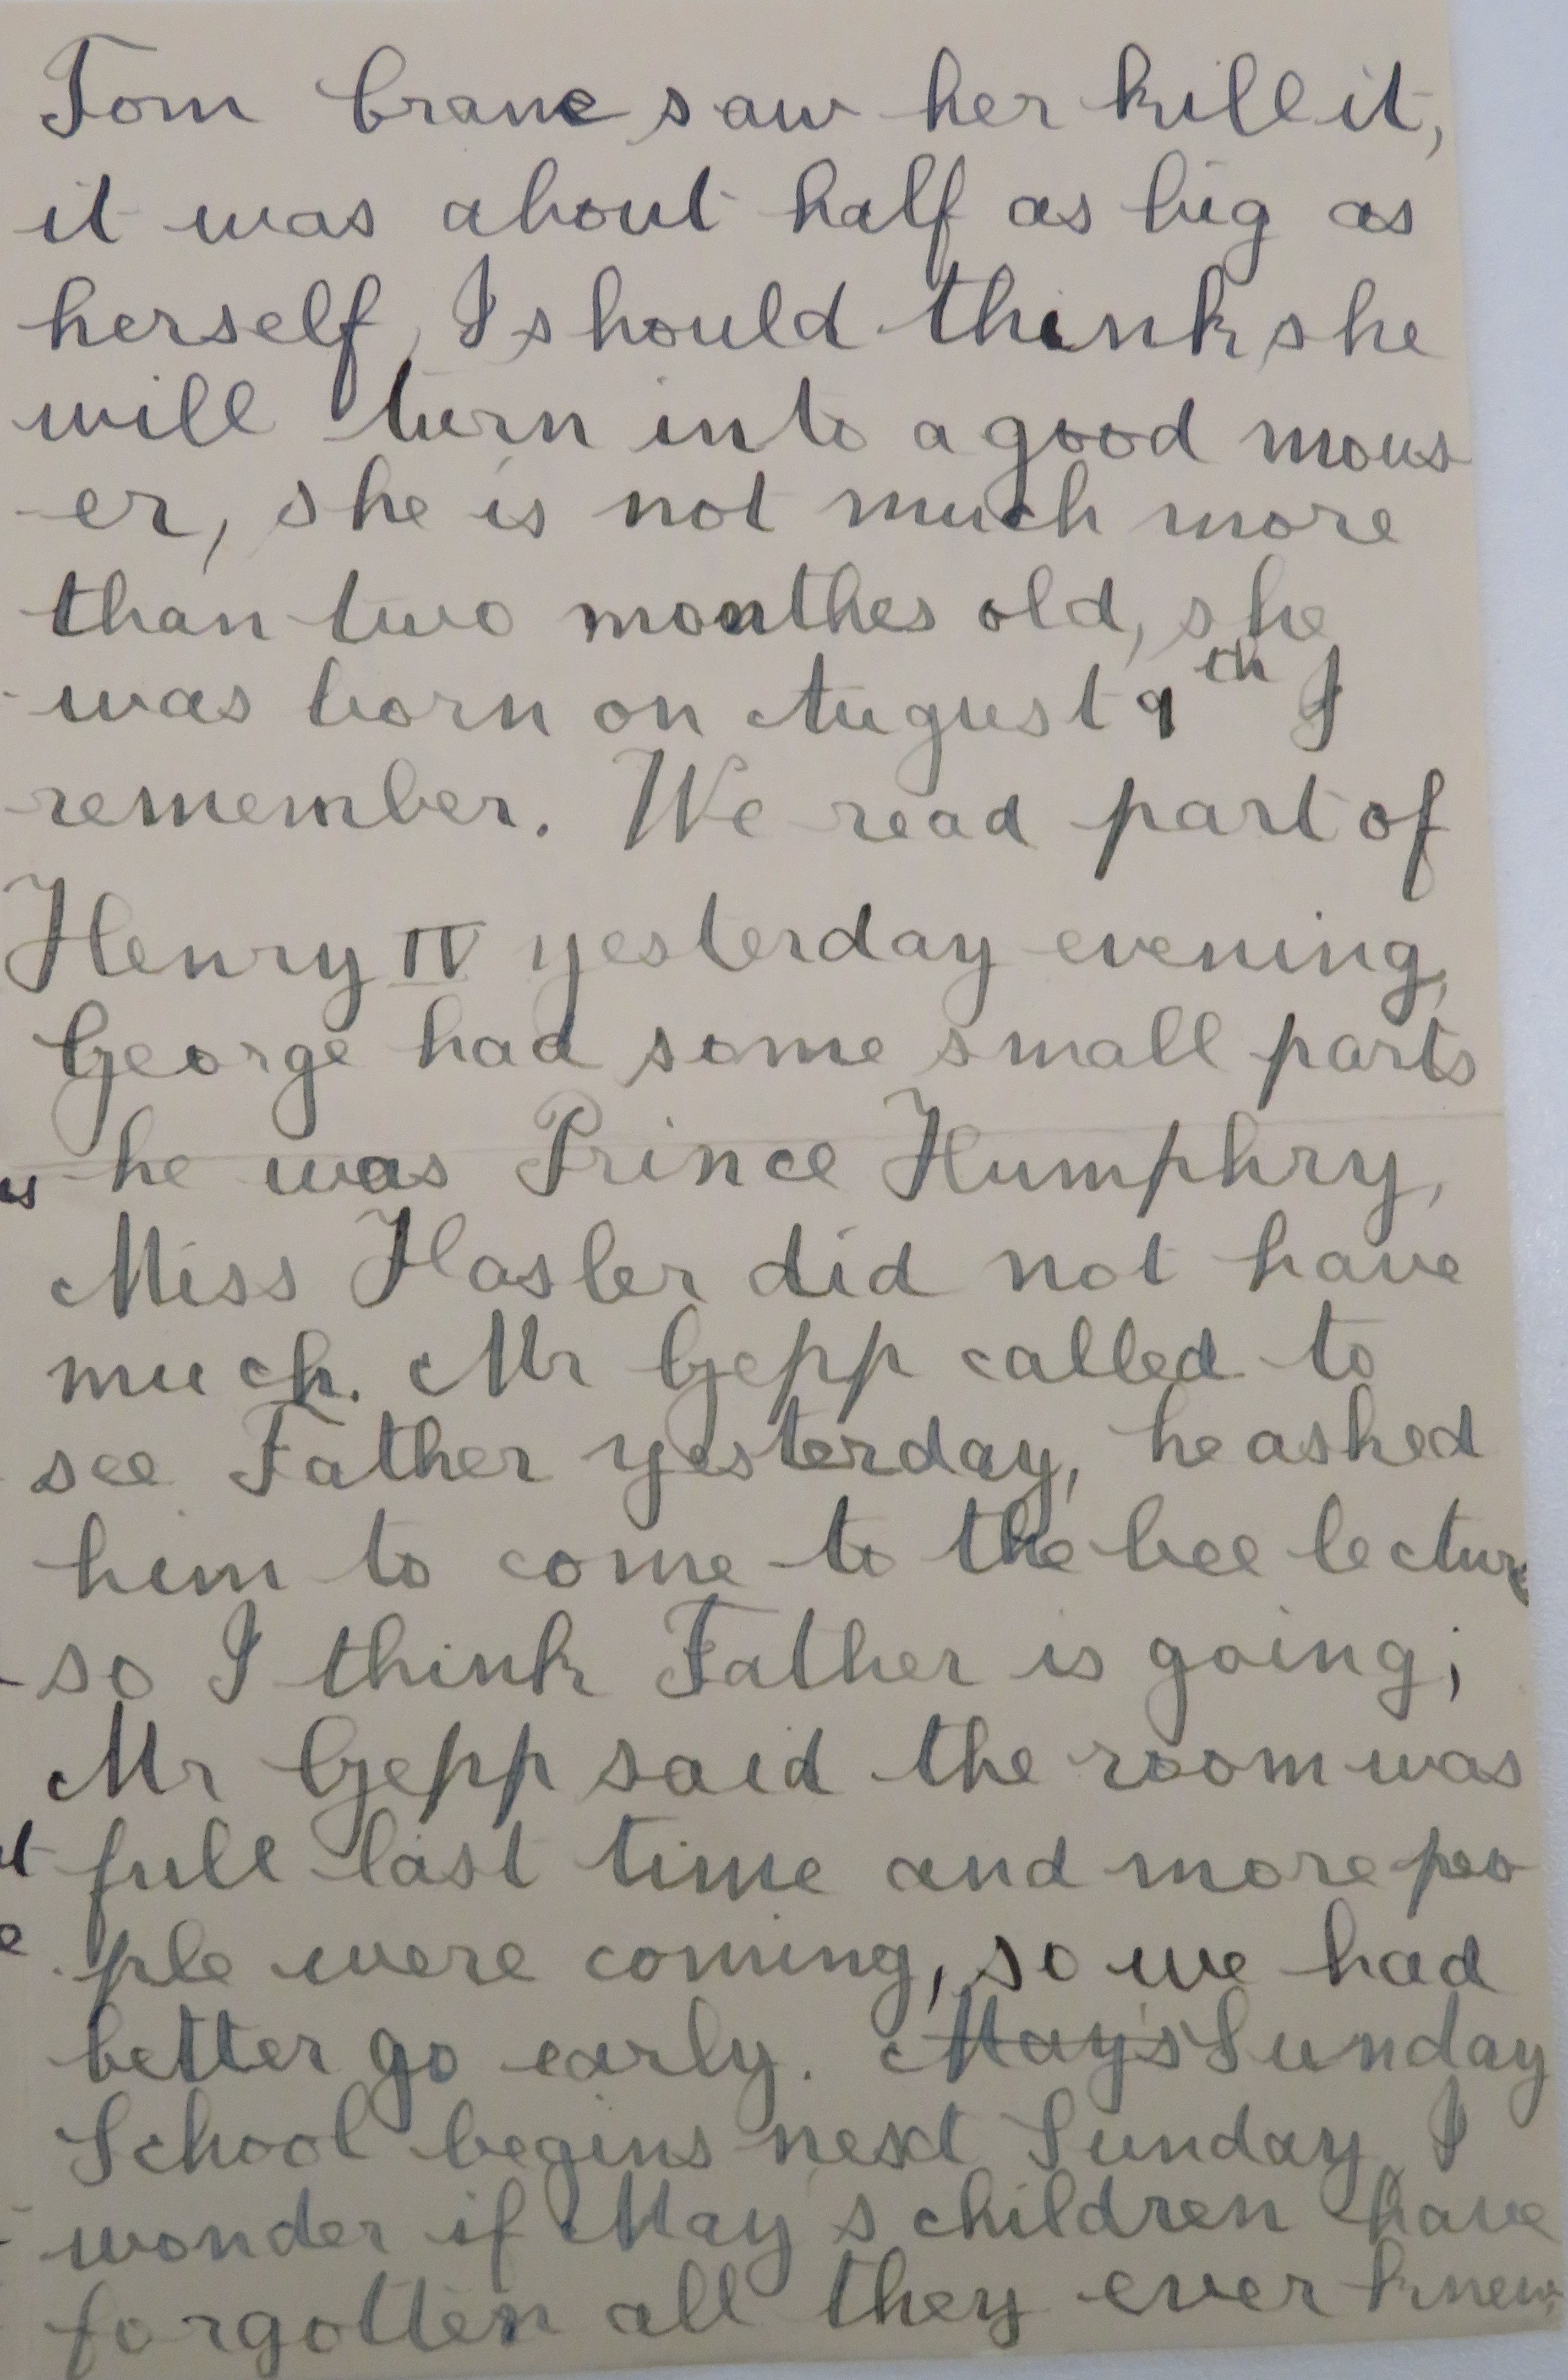 Tom Crane saw her kill it,
it was about half as big as
herself, I should think she
will turn into a good mous
-er, she is not much more
than two monthes old, she
was born on August 9th I
remember. We read part of
Henry IV yesterday evening,
George had some small parts
he was Prince Humphry,
Miss Hasler did not have
much. Mr Gepp called to
see Father yesterday, he asked
him to come to the bee lecture
so I think Father is going;
Mr Gepp said the room was
full last time and more peo
ple were coming, so we had
better go early. May's Sunday
School begins next Sunday, I
wonder if May's children have
forgotten all they ever knew,